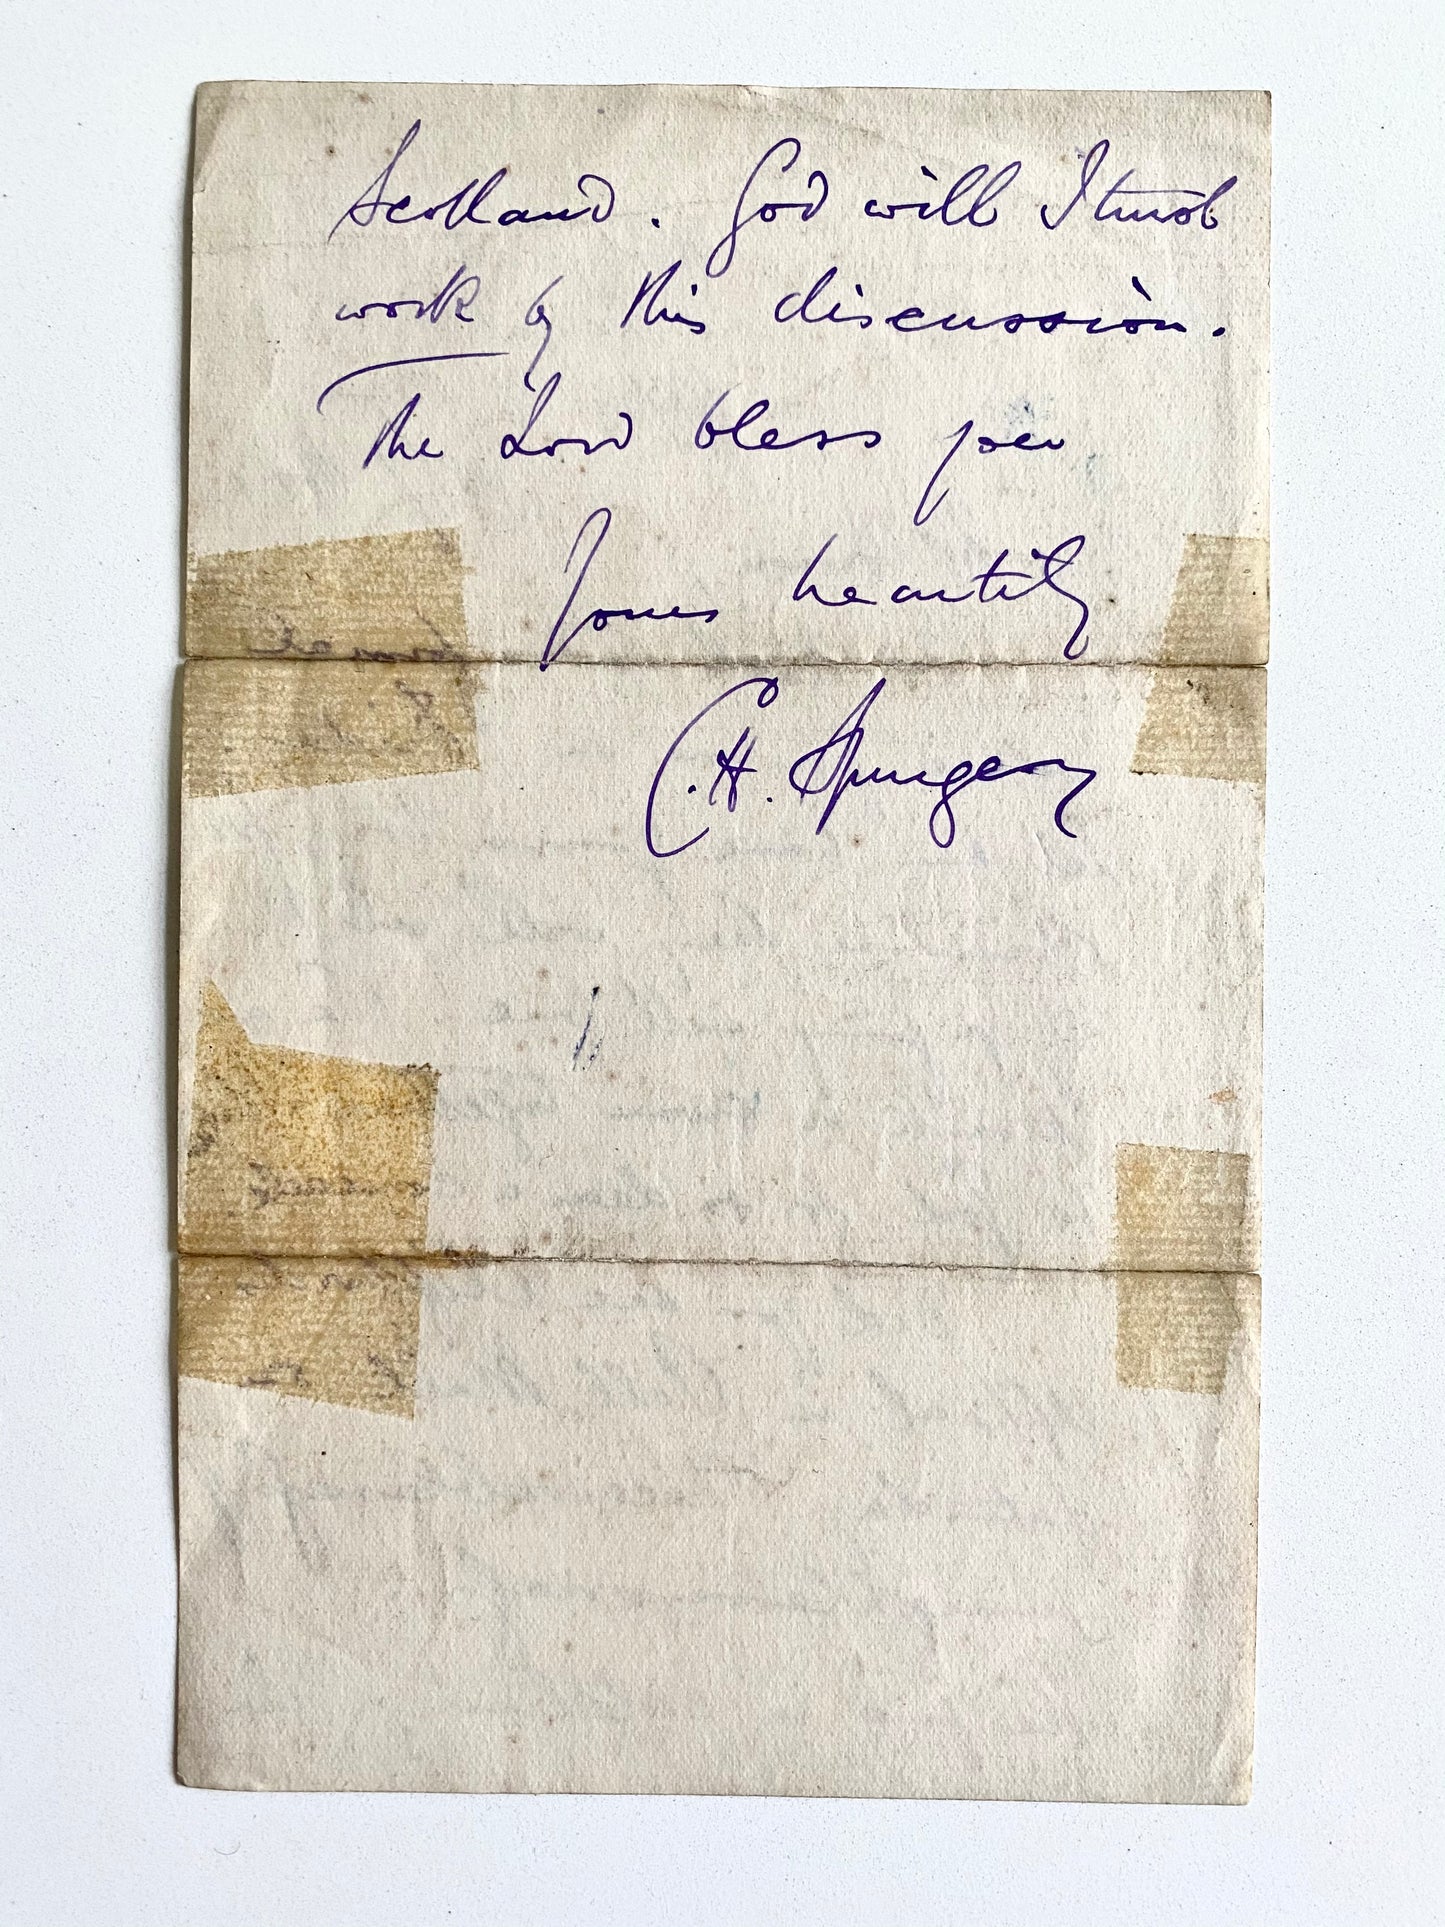 Scotland. God will I trust
work by this discussion.
The Lord bless you
Yours heartily
C. H. Spurgeon